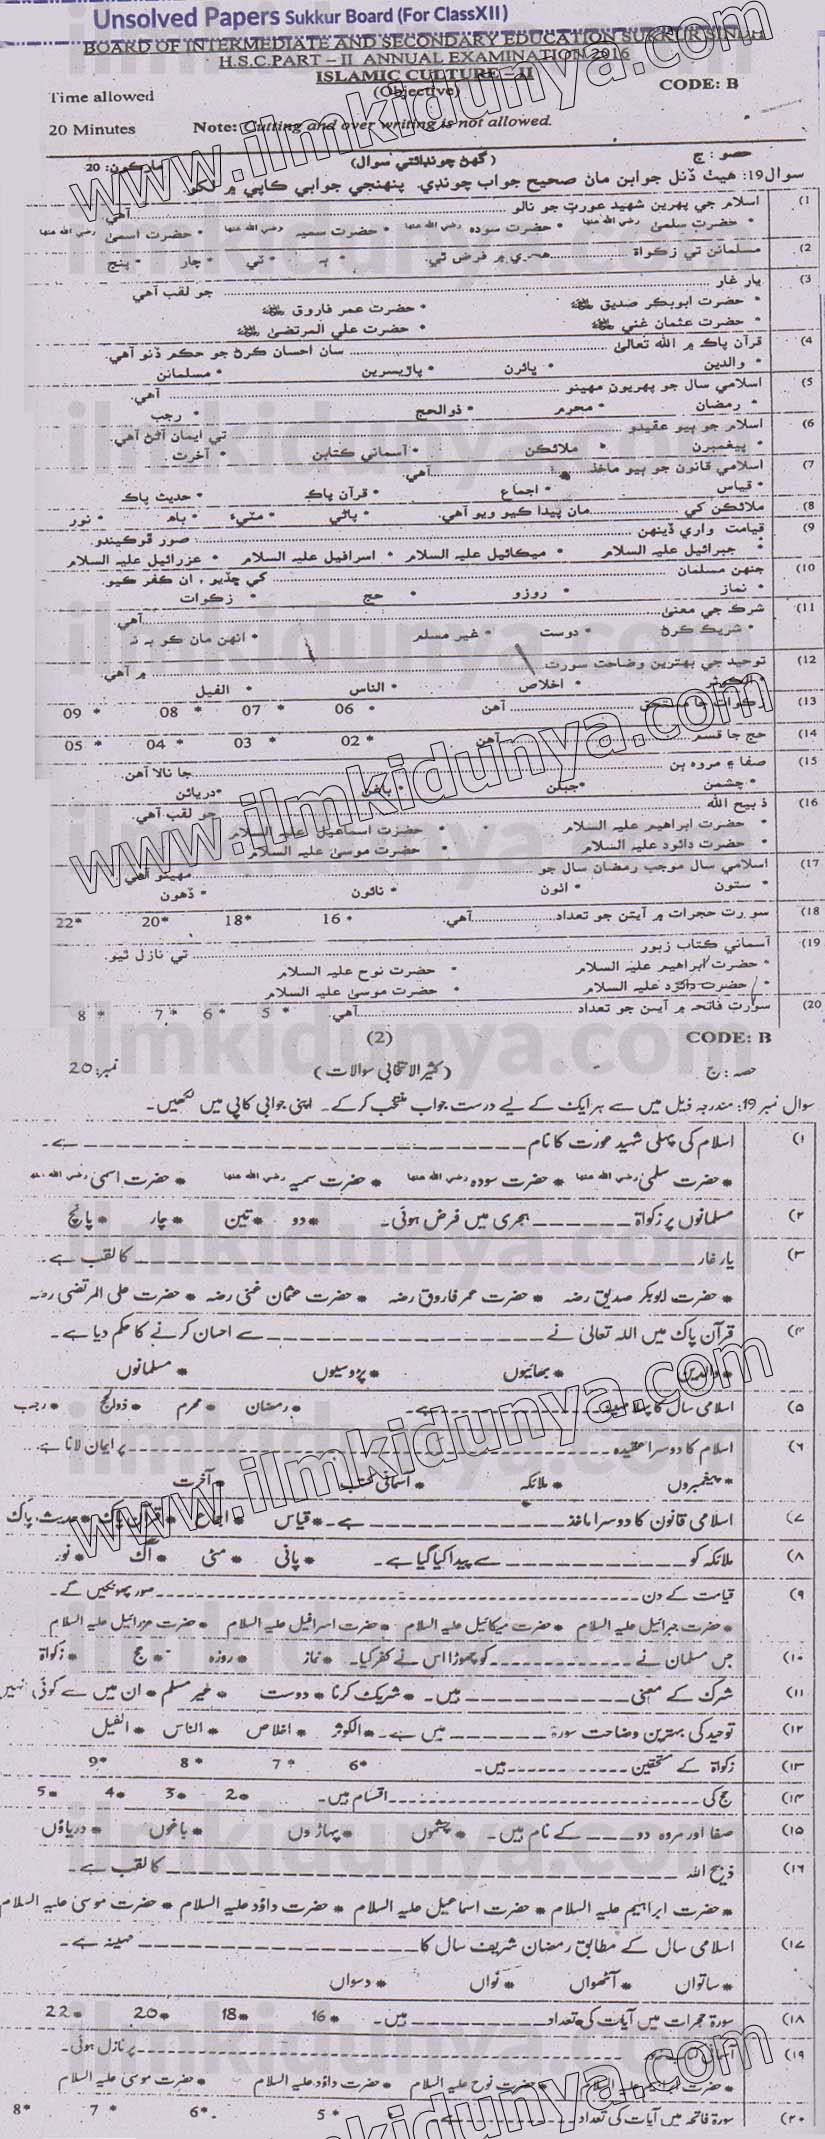 Unsolved Papers Sukkur Board (For ClassXII)
BOARD OF INTERMEDIATE AND SECONDARY EDUCATION SUKKUR SINDH
H.S.C.PART – II ANNUAL EXAMINATION 2016
ISLAMIC CULTURE – II
(Objective)
CODE: B
Time allowed
20 Minutes
Note: Cutting and over writing is not allowed.
حصو : ج (گھڻ چونڊائتي سوال) مارڪون: 20
سوال 19: هيٺ ڏنل جوابن مان صحيح جواب چونڊي. پنهنجي جوابي ڪاپي ۾ لکو.
(1 اسلام جي پهرين شهيد عورت جو نالو ........ آهي.
* حضرت سلميٰ رضي الله عنها * حضرت سوده رضي الله عنها * حضرت سميه رضي الله عنها * حضرت اسميٰ رضي الله عنها
(2 مسلمانن تي زڪواة ........ هجري ۾ فرض ٿي. * ٻه * ٽي * چار * پنج
(3 يار غار ........ جو لقب آهي
* حضرت ابوبڪر صديق * حضرت عمر فاروق
* حضرت عثمان غني * حضرت علي المرتضيٰ
(4 قرآن پاڪ ۾ الله تعاليٰ ........ سان احسان ڪرڻ جو حڪم ڏنو آهي.
* والدين * ڀائرن * پاڙيسرين * مسلمانن
(5 اسلامي سال جو پهريون مهينو ........ آهي.
* رمضان * محرم * ذوالحج * رجب
(6 اسلام جو ٻيو عقيدو ........ تي ايمان آڻڻ آهي.
* پيغمبرن * ملائڪن * آسماني ڪتابن * آخرت
(7 اسلامي قانون جو ٻيو ماخذ ........ آهي.
* قياس * اجماع * قرآن پاڪ * حديث پاڪ
(8 ملائڪن کي ........ مان پيدا ڪيو ويو آهي. * پاڻي * مٽيء * باهه * نور
(9 قيامت واري ڏينهن ........ صور ڦوڪيندو.
* جبرائيل عليه السلام * ميڪائيل عليه السلام * اسرافيل عليه السلام * عزرائيل عليه السلام
(10 جنهن مسلمان ........ کي ڇڏيو ، ان ڪفر ڪيو.
* نماز * روزو * حج * زڪوات
(11 شرڪ جي معنيٰ ........ آهي.
* شريڪ ڪرڻ * دوست * غير مسلم * انهن مان ڪو به نه
(12 توحيد جي بهترين وضاحت سورت ........ ۾ آهي.
* الڪوثر * اخلاص * الناس * الفيل
(13 زڪوات جا مستحق ........ آهن * 06 * 07 * 08 * 09
(14 حج جا قسم ........ آهن * 02 * 03 * 04 * 05
(15 صفا ۽ مروه ٻن ........ جا نالا آهن.
* چشمن * جبلن * باغن * دريائن
(16 ذبيح الله ........ جو لقب آهي.
* حضرت ابراهيم عليه السلام * حضرت اسماعيل عليه السلام
* حضرت دائود عليه السلام * حضرت موسيٰ عليه السلام
(17 اسلامي سال موجب رمضان سال جو ........ مهينو آهي
* ستون * اٺون * نائون * ڏهون
(18 سورت حجرات ۾ آيتن جو تعداد ........ آهي. * 16 * 18 * 20 * 22
(19 آسماني ڪتاب زبور ........ تي نازل ٿيو.
* حضرت ابراهيم عليه السلام * حضرت نوح عليه السلام
* حضرت دائود عليه السلام * حضرت موسيٰ عليه السلام
(20 سورت فاتحه ۾ آيتن جو تعداد ........ آهي. * 5 * 6 * 7 * 8
(2) CODE: B
حصہ : ج (کثیر الانتخابی سوالات) نمبر: 20
سوال نمبر 19: مندرجہ ذیل میں سے ہر ایک کے لیے درست جواب منتخب کرکے۔ اپنی جوابی کاپی میں لکھیں۔
(۱ اسلام کی پہلی شہید عورت کا نام ________ ہے۔
* حضرت سلمیٰ رضی اللہ عنہا * حضرت سودہ رضی اللہ عنہا * حضرت سمیہ رضی اللہ عنہا * حضرت اسمیٰ رضی اللہ عنہا
(۲ مسلمانوں پر زکواۃ ______ ہجری میں فرض ہوئی۔ * دو * تین * چار * پانچ
(۳ یار غار ________ کا لقب ہے۔
* حضرت ابوبکر صدیق رضہ * حضرت عمر فاروق رضہ * حضرت عثمان غنی رضہ * حضرت علی المرتضی رضہ
(۴ قرآن پاک میں اللہ تعالیٰ نے ________ سے احسان کرنے کا حکم دیا ہے۔
* والدین * بھائیوں * پڑوسیوں * مسلمانوں
(۵ اسلامی سال کا پہلا مہینہ ________ ہے۔ * رمضان * محرم * ذوالحج * رجب
(۶ اسلام کا دوسرا عقیدہ ________ پر ایمان لانا ہے۔
* پیغمبروں * ملائکہ * آسمانی کتب * آخرت
(۷ اسلامی قانون کا دوسرا ماخذ ________ ہے۔ * قیاس * اجماع * قرآن پاک * حدیث پاک
(۸ ملائکہ کو ________ سے پیدا کیا گیا ہے۔ * پانی * مٹی * آگ * نور
(۹ قیامت کے دن ________ صور پھونکیں گے۔
* حضرت جبرائیل علیہ السلام * حضرت میکائیل علیہ السلام * حضرت اسرافیل علیہ السلام * حضرت عزرائیل علیہ السلام
(۱۰ جس مسلمان نے ________ کو چھوڑا اس نے کفر کیا۔ * نماز * روزہ * حج * زکواۃ
(۱۱ شرک کے معنی ________ ہیں۔ * شریک کرنا * دوست * غیر مسلم * ان میں سے کوئی نہیں
(۱۲ توحید کی بہترین وضاحت سورۃ ______ میں ہے۔ * الکوثر * اخلاص * الناس * الفیل
(۱۳ زکواۃ کے مستحقین ________ ہیں۔ *6 *7 *8 *9
(۱۴ حج کی ________ اقسام ہیں۔ *2 *3 *4 *5
(۱۵ صفا اور مروہ دو ____ کے نام ہیں۔ * چشموں * پہاڑوں * باغوں * دریاؤں
(۱۶ ذبیح اللہ ________ کا لقب ہے۔
* حضرت ابراہیم علیہ السلام * حضرت اسماعیل علیہ السلام * حضرت داؤد علیہ السلام * حضرت موسیٰ علیہ السلام
(۱۷ اسلامی سال کے مطابق رمضان شریف سال کا ________ مہینہ ہے۔
* ساتواں * آٹھواں * نواں * دسواں
(۱۸ سورۃ حجرات میں آیات کی تعداد ________ ہیں۔ *16 *18 *20 *22
(۱۹ آسمانی ________ پر نازل ہوئی۔
* حضرت ابراہیم علیہ السلام * حضرت نوح علیہ السلام * حضرت داؤد علیہ السلام * حضرت موسیٰ علیہ السلام
(۲۰ سورۃ فاتحہ میں آیات کی تعداد ________ ہے *5 *6 *7 *8
www.ilmkidunya.com